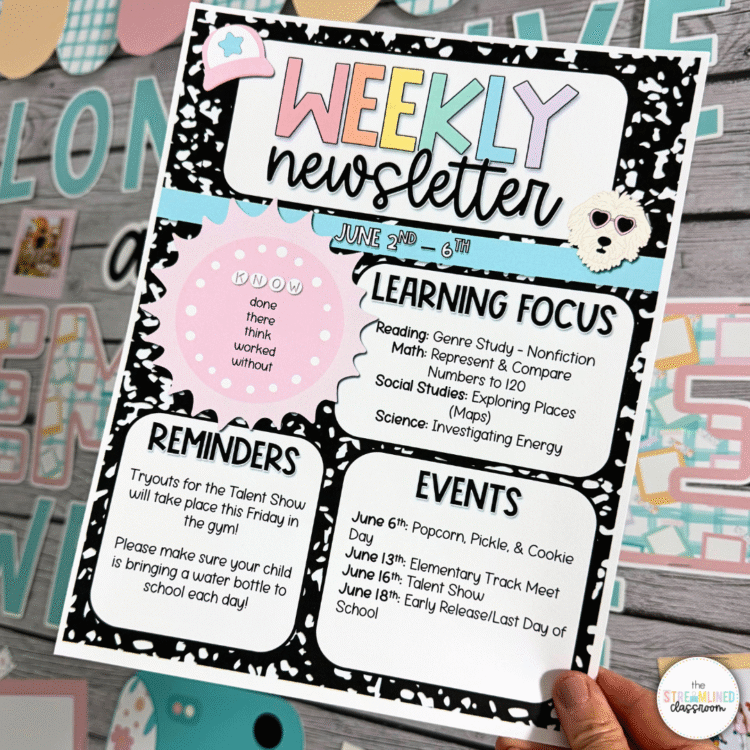 WEEKLY
newsletter
JUNE 2ND – 6TH
KNOW
done
there
think
worked
without
LEARNING FOCUS
Reading: Genre Study - Nonfiction
Math: Represent & Compare
Numbers to 120
Social Studies: Exploring Places
(Maps)
Science: Investigating Energy
REMINDERS
Tryouts for the Talent Show
will take place this Friday in
the gym!
Please make sure your child
is bringing a water bottle to
school each day!
EVENTS
June 6th: Popcorn, Pickle, & Cookie
Day
June 13th: Elementary Track Meet
June 16th: Talent Show
June 18th: Early Release/Last Day of
School
the
STREAMLINED
classroom